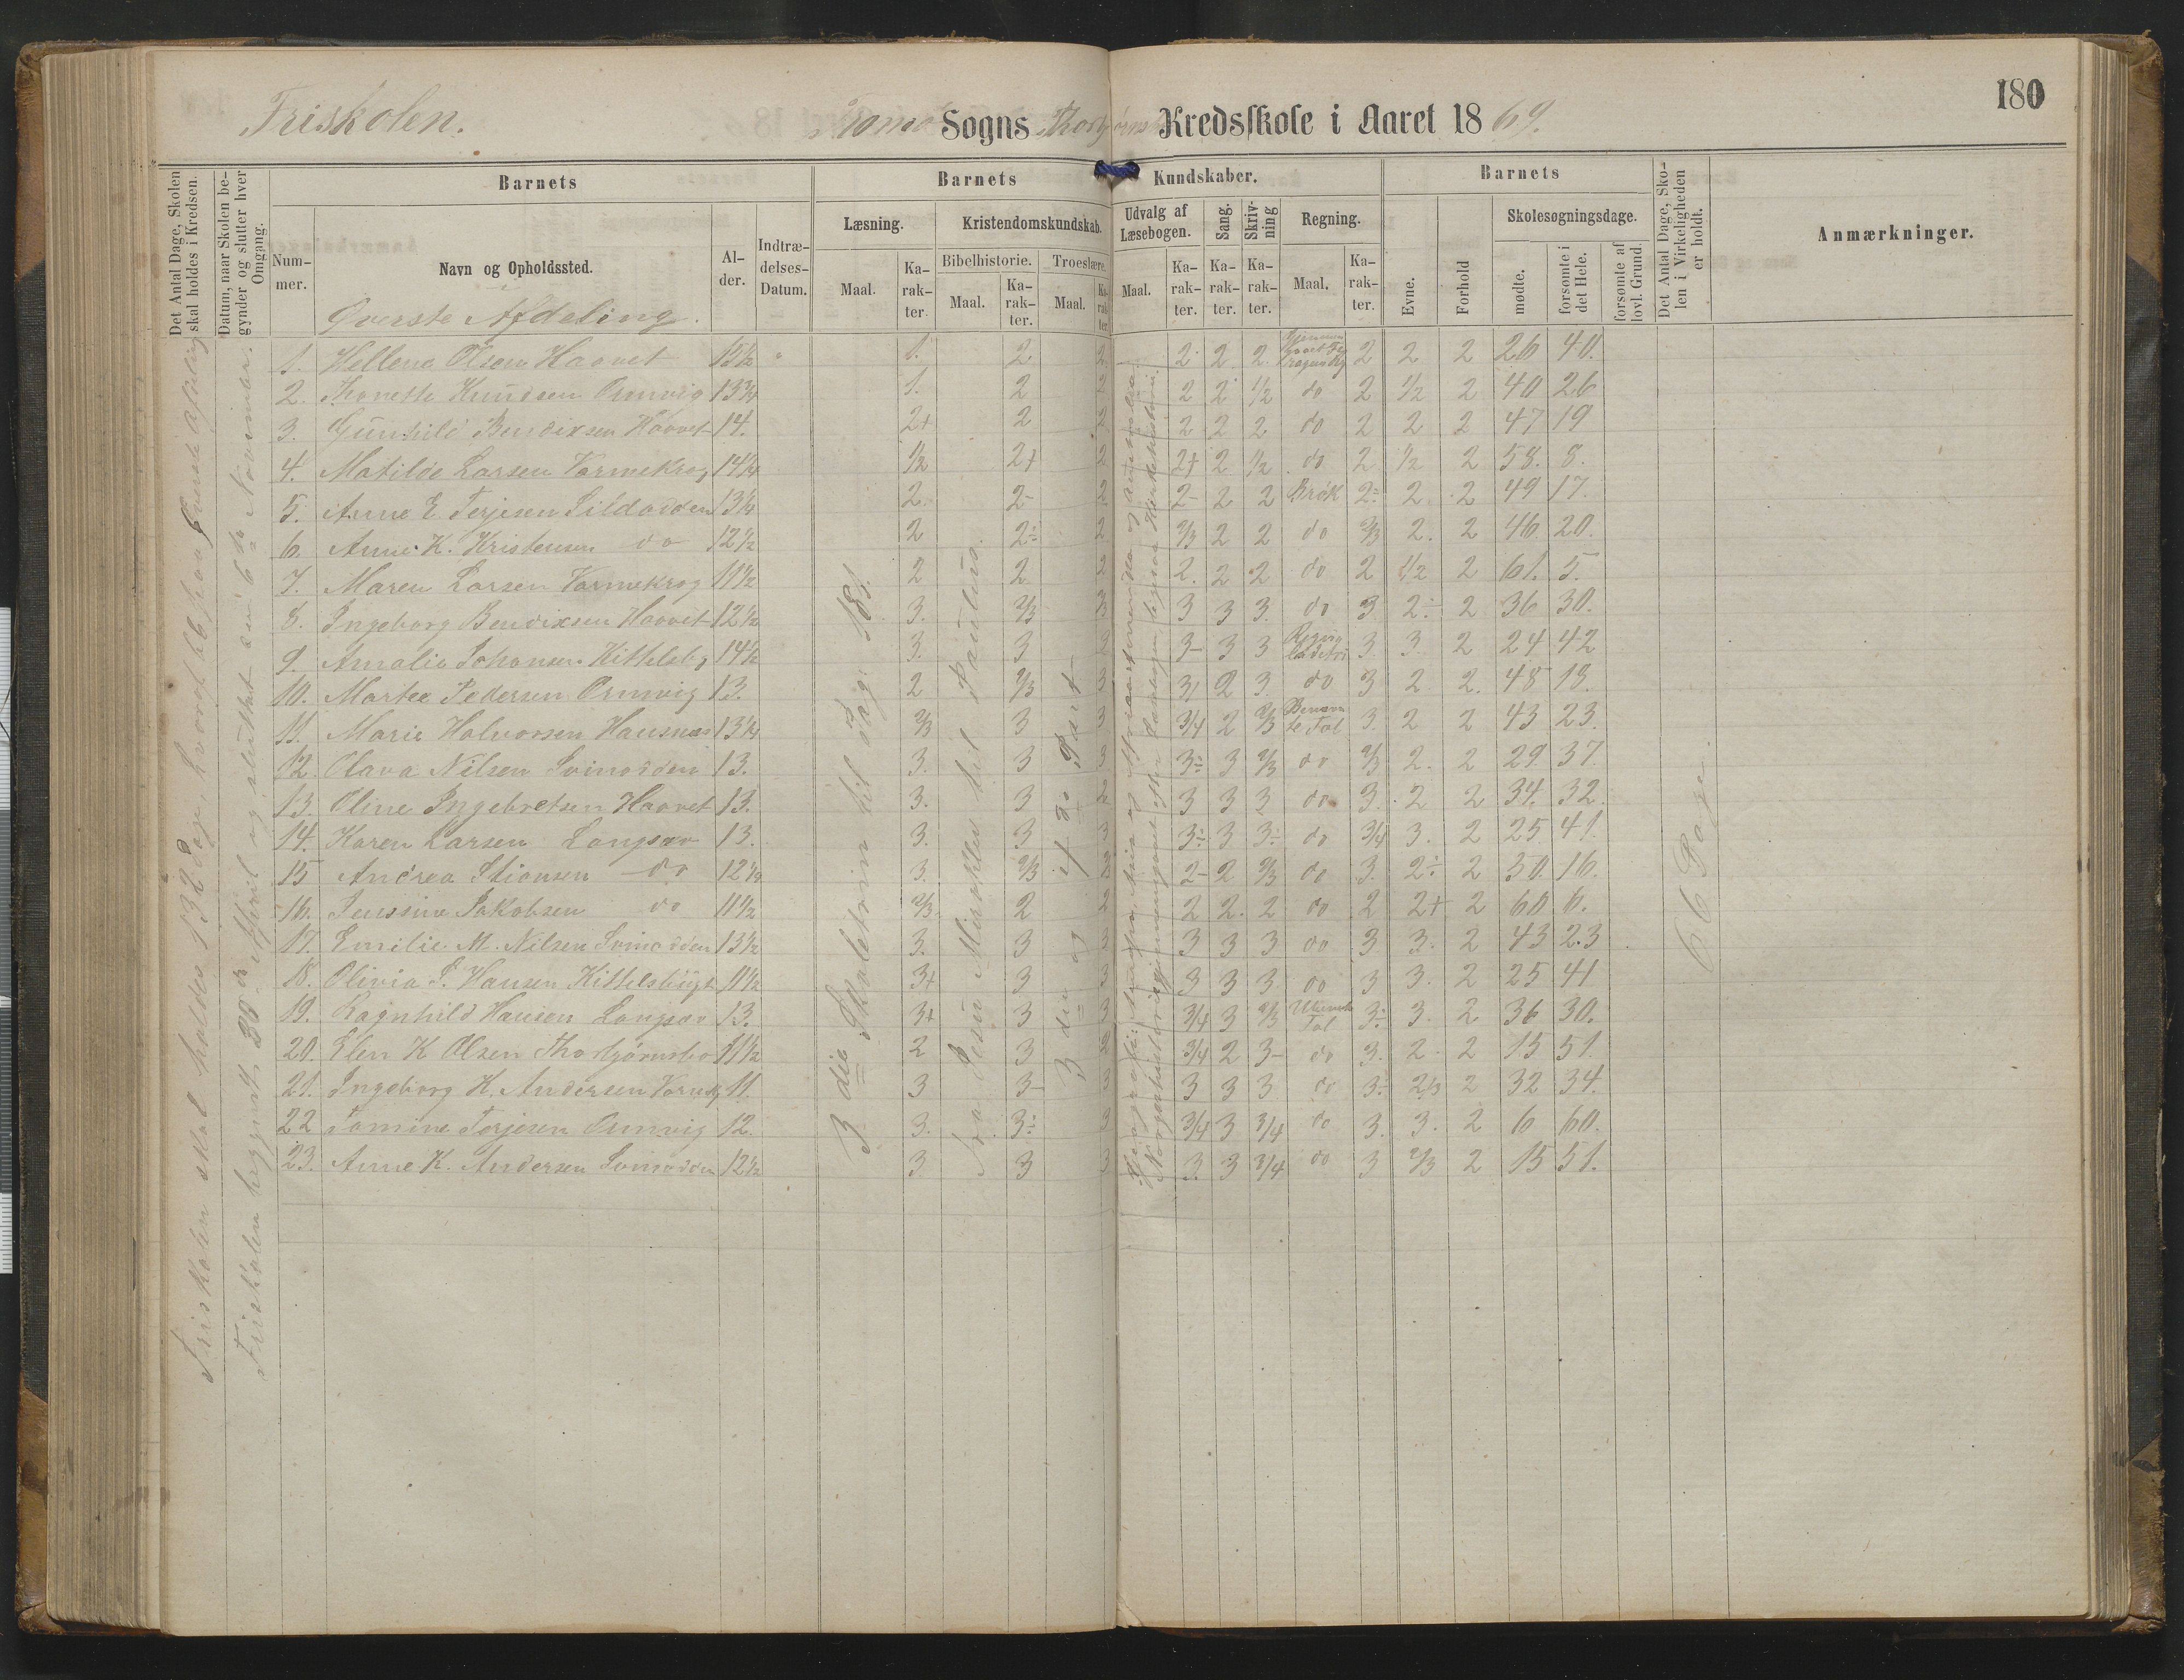 180
Friskolen.
Tromø Sogns Kredsskole i Aaret 1869.
Det Antal Dage, Skolen skal holdes i Kredsen.
Datum, naar Skolen begynder og slutter hver Omgang.
Barnets
Barnets Kundskaber.
Barnets
Det Antal Dage, Skolen i Virkeligheden er holdt.
Anmærkninger.
Nummer.
Navn og Opholdssted.
Alder.
Indtrædelses-Datum.
Læsning.
Kristendomskundskab.
Udvalg af Læsebogen.
Sang.
Skrivning
Regning.
Evne.
Forhold
Skolesøgningsdage.
Bibelhistorie.
Troeslære.
Maal.
Karakter
Maal.
Karakter.
Maal.
Karakter
Maal.
Karakter.
Karakter.
Karakter.
Maal.
Karakter.
mødte.
forsømte i det Hele.
forsømte af lovl. Grund.
Øverste Afdeling.
1. Hellene Olsen Haavet 12½ 1. 2 2 2 2 2 2 2 2 26 40.
2. Thonette Knudsen Ormvig 13¾ 1. 2 2 2 2 1/2 do 2 1/2 2 40 26
3. Gunhild Bendixsen Haavet 14. 2+ 2 2 2 2 2 do 2 2 2 47 19
4. Matilde Larsen Varmekrog 14¼ 1/2 2+ 2 2+ 2 1/2 do 2 1/2 2 58. 8.
5. Anne E. Terjesen Sildodden 13¼ 2. 2- 2 2- 2 2 Brøk 2÷ 2 2 49 17.
6. Anne K. Kristensen do 12½ 2 2÷ 2 2/3 2 2 do 2/3 2. 2 46 20.
7. Maren Larsen Varmekrog 11½ 2 2 2 2. 2 2 do 2 1/2 2 61. 5.
8. Ingeborg Bendixsen Haavet 12½ 3. 2/3 3 3 3. do 3 2÷ 2 36 30.
9. Amalie Johansen Kittelsbg 14½ 3. 3 2 3- 3 3 3. 3. 2 24 42
10. Marte Pedersen Ormvig 13. 2 2/3 3 2 3. do 3 2 2. 48 18.
11. Marie Halvorsen Hausnes 13¼ 2/3 3 3 3/4 2 2/3 Benævnte Tal 3. 2 2 43 23.
12. Olava Nilsen Svinodden 13. 3. 3 3 3÷ 3 2/3 do 2/3 2. 2 29. 37.
13. Oline Ingebretsen Haavet 13. 3. 3 2 3 3 3 do 3. 2 2 34. 32.
14. Karen Larsen Langsav 13. 3. 3 3 3÷ 3 3÷ do 3/4 3. 2 25 41.
15 Andrea Stiansen do 3. 2/3 2- 2 2/3 do 3. 2÷ 2 50. 16.
16. Jenssine Jakobsen do 11½ 2/3. 2 2 2 2. 2 do 2 2+ 2 60 6.
17. Emilie M. Nilsen Svinodden 13½ 3. 3 3 3 3 3 do 3 3. 2 43 23
18. Olivia Hansen 11½ 3+ 3 3 3 3 3 do 3 3. 2 25 41
19. Ragnhild Hansen Langsav 13. 3+ 3 3 3/4 3 2/3 3÷ 3. 2 36 30.
20. Elen K Olsen Thorbjørnsbo 11½ 2 3 2 3/4 2 3- do 3. 2. 2 15 51.
21. Ingeborg H. Andersen 11. 3 3- 3 3 3 3 do 3÷ 2/3 2 32 34.
22 Tomine Terjesen Ormvig 12. 3. 3÷ 3 3/4 3 3/4 do 3. 3. 2 6 60.
23. Anne K. Andersen Svinodden 12½ 3 3 3 3. 3 3/4 do 3 2/3 2 15 51.
3die Læsetrin til Pag: 181.
3die og 4do Part
66 Dage.